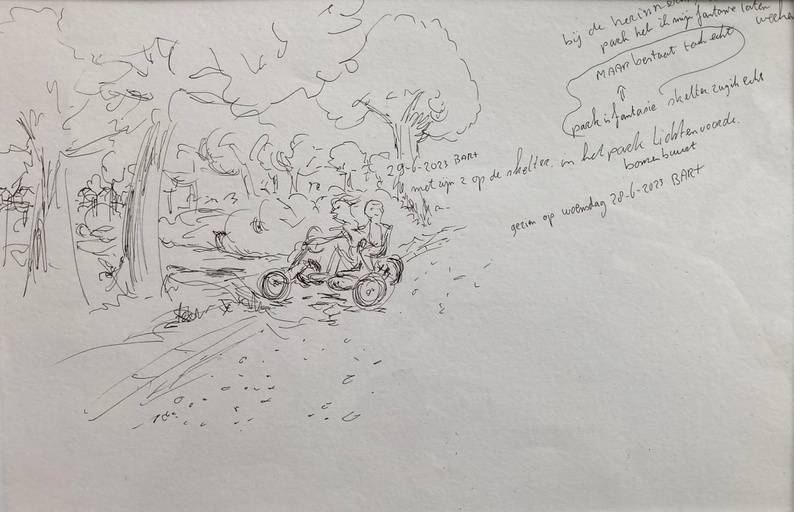 bij de herinnering
park heb ik mijn fantasie laten werken
MAAR bestaat toch echt
park is fantasie skelter zag ik echt
29-6-2023 BART
met zijn 2 op de skelter in het park Lichtenvoorde.
gezien op woensdag 28-6-2023 BART